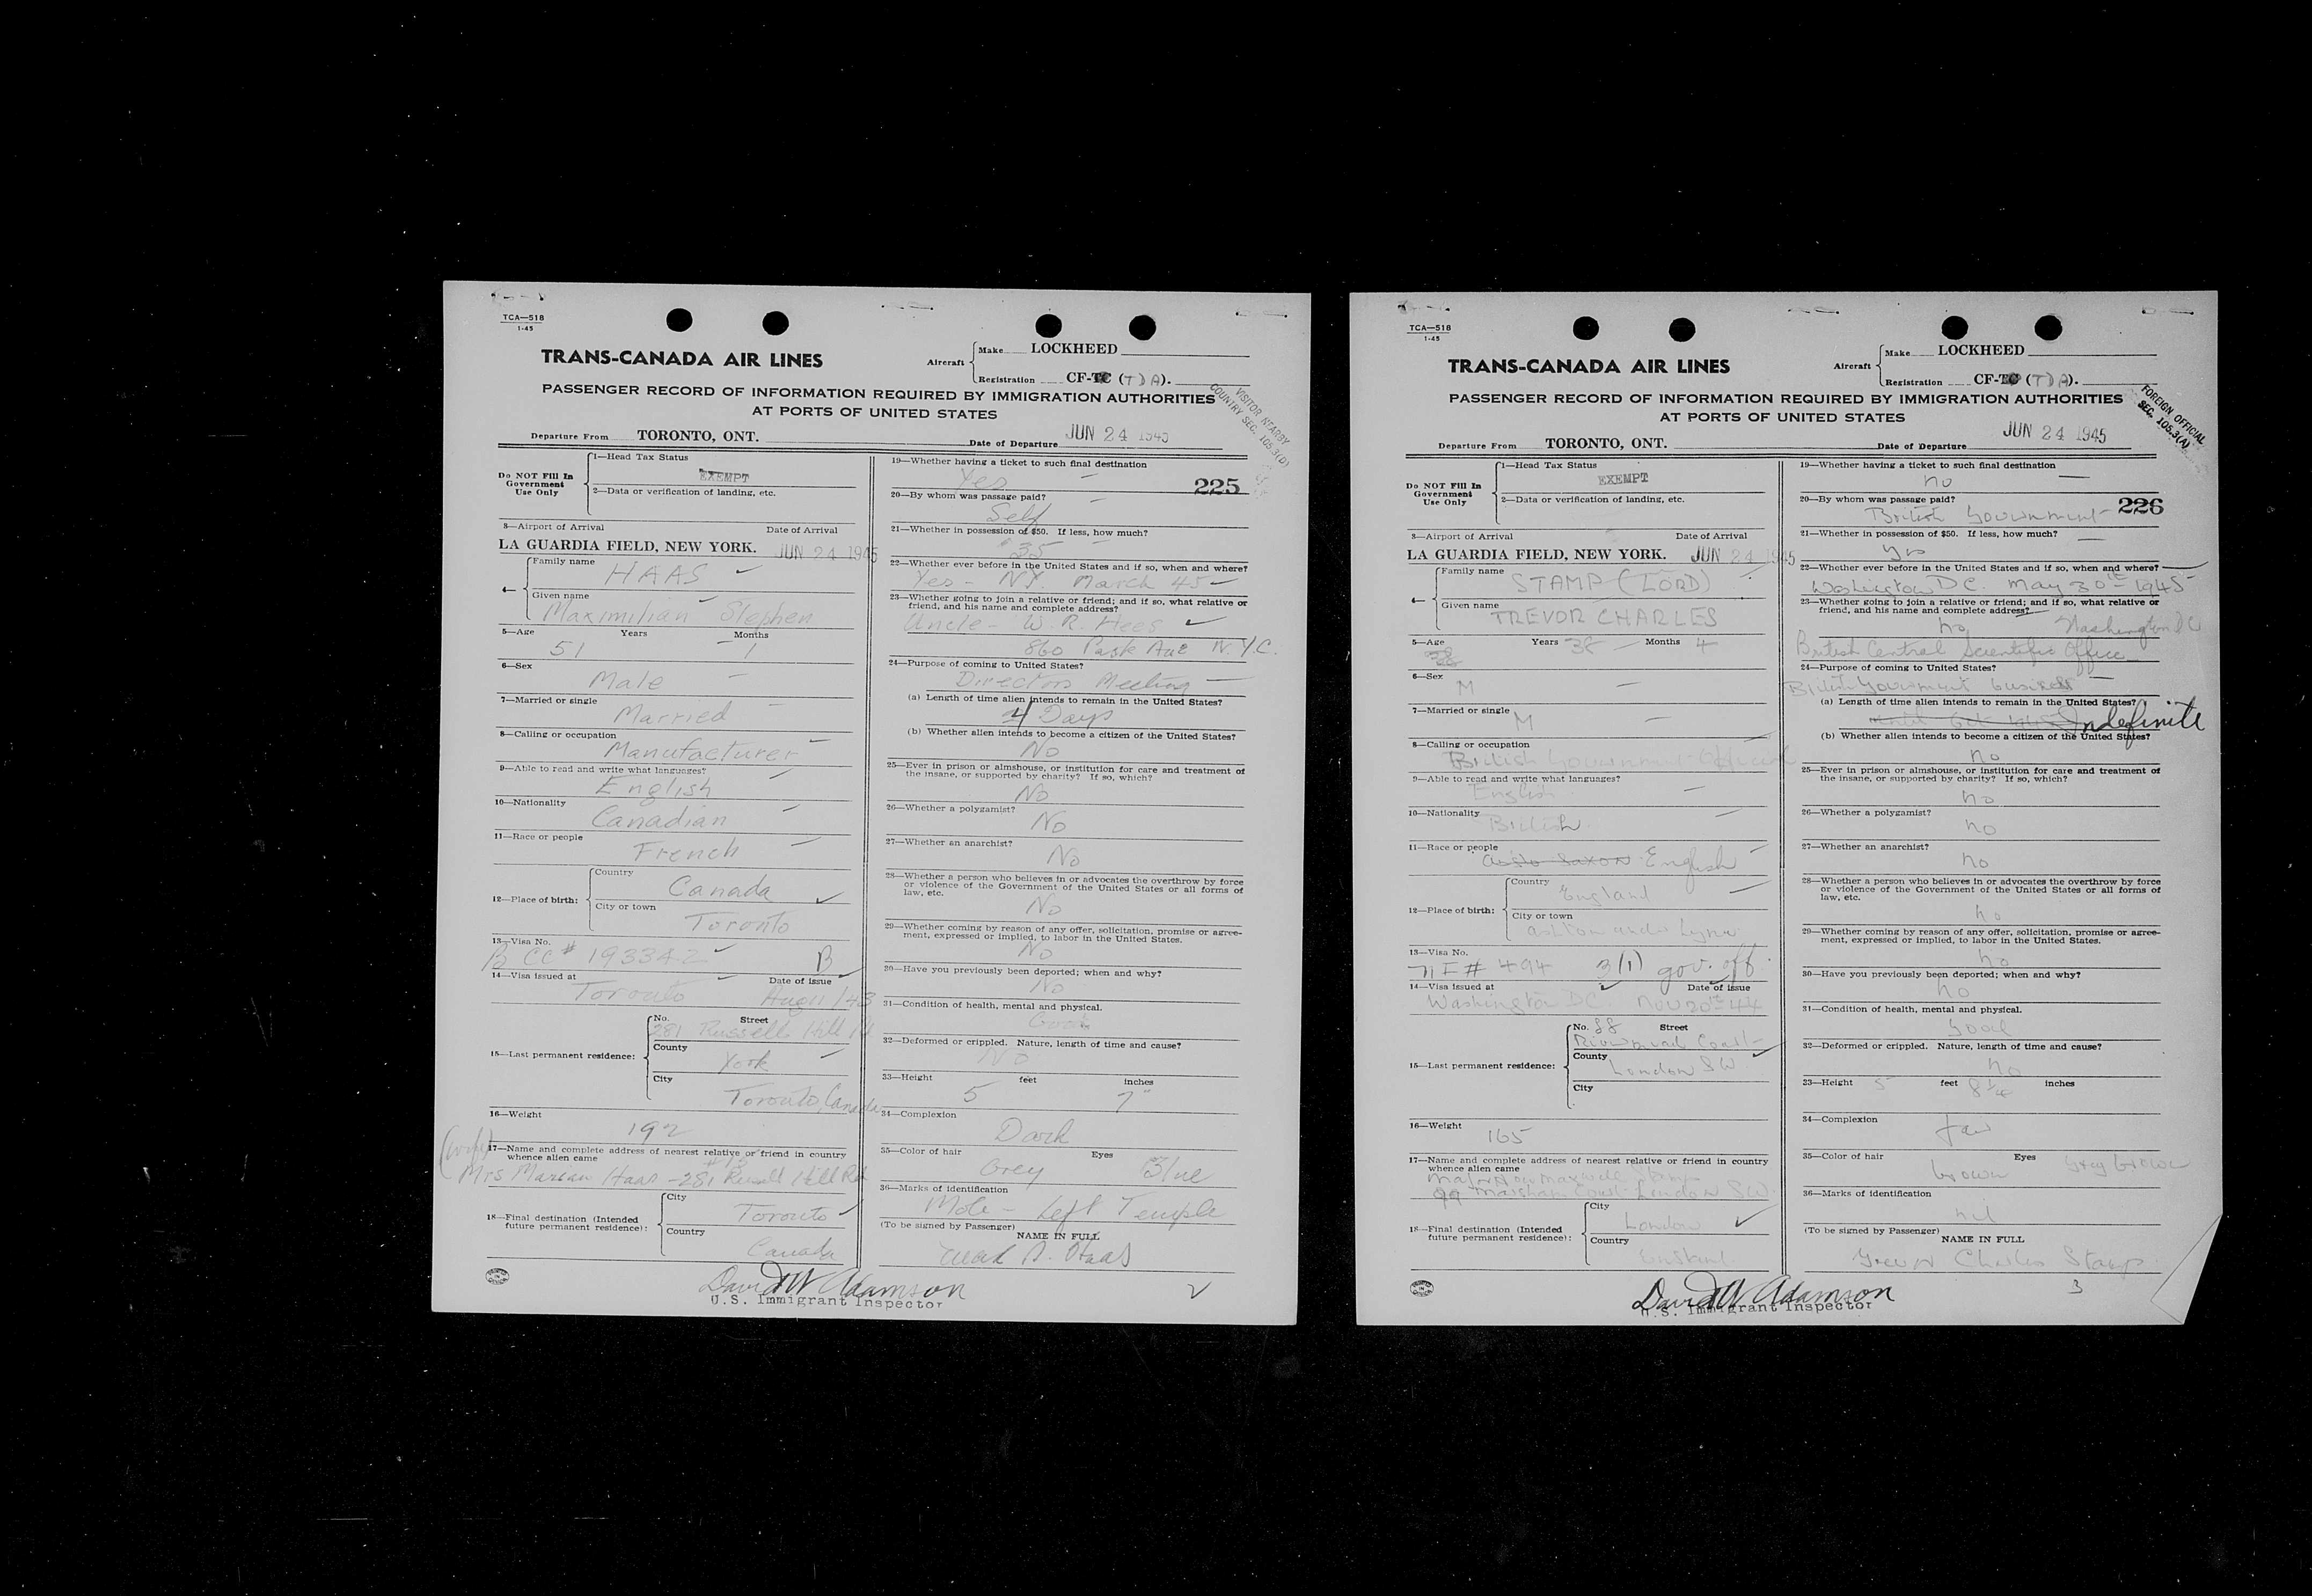 TCA—518
1-45
TRANS-CANADA AIR LINES
Aircraft
Make LOCKHEED
Registration CF-TC (TDA).
PASSENGER RECORD OF INFORMATION REQUIRED BY IMMIGRATION AUTHORITIES
AT PORTS OF UNITED STATES
VISITOR NEARBY
COUNTRY SEC. 105.3(D)
Departure From TORONTO, ONT. Date of Departure JUN 24 1945
Do NOT Fill In
Government
Use Only
1—Head Tax Status
EXEMPT
2—Data or verification of landing, etc.
3—Airport of Arrival Date of Arrival
LA GUARDIA FIELD, NEW YORK. JUN 24 1945
4—
Family name
HAAS
Given name
Maximilian Stephen
5—Age Years Months
51 1
6—Sex
Male
7—Married or single
Married
8—Calling or occupation
Manufacturer
9—Able to read and write what languages?
English
10—Nationality
Canadian
11—Race or people
French
12—Place of birth:
Country
Canada
City or town
Toronto
13—Visa No.
B CC # 193342 B
14—Visa issued at Date of issue
Toronto Aug 11/43
15—Last permanent residence:
No. Street
281 Russell Hill Rd
County
York
City
Toronto, Canada
16—Weight
192
(wife)
17—Name and complete address of nearest relative or friend in country
whence alien came
Mrs Marian Haas - 281 Russell Hill Rd
18—Final destination (Intended
future permanent residence):
City
Toronto
Country
Canada
19—Whether having a ticket to such final destination
Yes
225
20—By whom was passage paid?
Self
21—Whether in possession of $50. If less, how much?
$35
22—Whether ever before in the United States and if so, when and where?
Yes - N.Y. March 45
23—Whether going to join a relative or friend; and if so, what relative or
friend, and his name and complete address?
Uncle - W. R. Hees
860 Park Ave N.Y.C.
24—Purpose of coming to United States?
Directors Meeting
(a) Length of time alien intends to remain in the United States?
4 Days
(b) Whether alien intends to become a citizen of the United States?
No
25—Ever in prison or almshouse, or institution for care and treatment of
the insane, or supported by charity? If so, which?
No
26—Whether a polygamist?
No
27—Whether an anarchist?
No
28—Whether a person who believes in or advocates the overthrow by force
or violence of the Government of the United States or all forms of
law, etc.
No
29—Whether coming by reason of any offer, solicitation, promise or agree-
ment, expressed or implied, to labor in the United States.
No
30—Have you previously been deported; when and why?
No
31—Condition of health, mental and physical.
Good
32—Deformed or crippled. Nature, length of time and cause?
No
33—Height feet inches
5 7"
34—Complexion
Dark
35—Color of hair Eyes
Grey Blue
36—Marks of identification
Mole - Left Temple
(To be signed by Passenger)
NAME IN FULL
S. Haas
David W Adamson
U.S. Immigrant Inspector
2
TCA—518
1-45
TRANS-CANADA AIR LINES
Aircraft
Make LOCKHEED
Registration CF-TC (TDA).
PASSENGER RECORD OF INFORMATION REQUIRED BY IMMIGRATION AUTHORITIES
AT PORTS OF UNITED STATES
FOREIGN OFFICIAL
SEC. 105.3(A)
Departure From TORONTO, ONT. Date of Departure JUN 24 1945
Do NOT Fill In
Government
Use Only
1—Head Tax Status
EXEMPT
2—Data or verification of landing, etc.
3—Airport of Arrival Date of Arrival
LA GUARDIA FIELD, NEW YORK. JUN 24 1945
4—
Family name
STAMP (LORD)
Given name
TREVOR CHARLES
5—Age Years 38 Months 4
6—Sex
M
7—Married or single
M
8—Calling or occupation
British Government Official
9—Able to read and write what languages?
English
10—Nationality
British
11—Race or people
Anglo Saxon English
12—Place of birth:
Country
England
City or town
Ashton under Lyne
13—Visa No.
# 494 3(1) gov. off.
14—Visa issued at Date of issue
Washington DC Nov 20th 44
15—Last permanent residence:
No. 88 Street
Rivermead Court
County
London SW
City
16—Weight
165
17—Name and complete address of nearest relative or friend in country
whence alien came
Maxwell Stamp
Marsham Court London SW
18—Final destination (Intended
future permanent residence):
City
London
Country
England
19—Whether having a ticket to such final destination
no
20—By whom was passage paid?
226
British Government
21—Whether in possession of $50. If less, how much?
yes
22—Whether ever before in the United States and if so, when and where?
Washington D.C. May 30th 1945
23—Whether going to join a relative or friend; and if so, what relative or
friend, and his name and complete address?
no Washington DC
British Central Scientific Office
24—Purpose of coming to United States?
British Government business
(a) Length of time alien intends to remain in the United States?
Indefinite
(b) Whether alien intends to become a citizen of the United States?
no
25—Ever in prison or almshouse, or institution for care and treatment of
the insane, or supported by charity? If so, which?
no
26—Whether a polygamist?
no
27—Whether an anarchist?
no
28—Whether a person who believes in or advocates the overthrow by force
or violence of the Government of the United States or all forms of
law, etc.
no
29—Whether coming by reason of any offer, solicitation, promise or agree-
ment, expressed or implied, to labor in the United States.
no
30—Have you previously been deported; when and why?
no
31—Condition of health, mental and physical.
good
32—Deformed or crippled. Nature, length of time and cause?
no
33—Height 5 feet 8¼ inches
34—Complexion
fair
35—Color of hair Eyes
brown grey brown
36—Marks of identification
nil
(To be signed by Passenger)
NAME IN FULL
Trevor Charles Stamp
David W Adamson
U.S. Immigrant Inspector
3